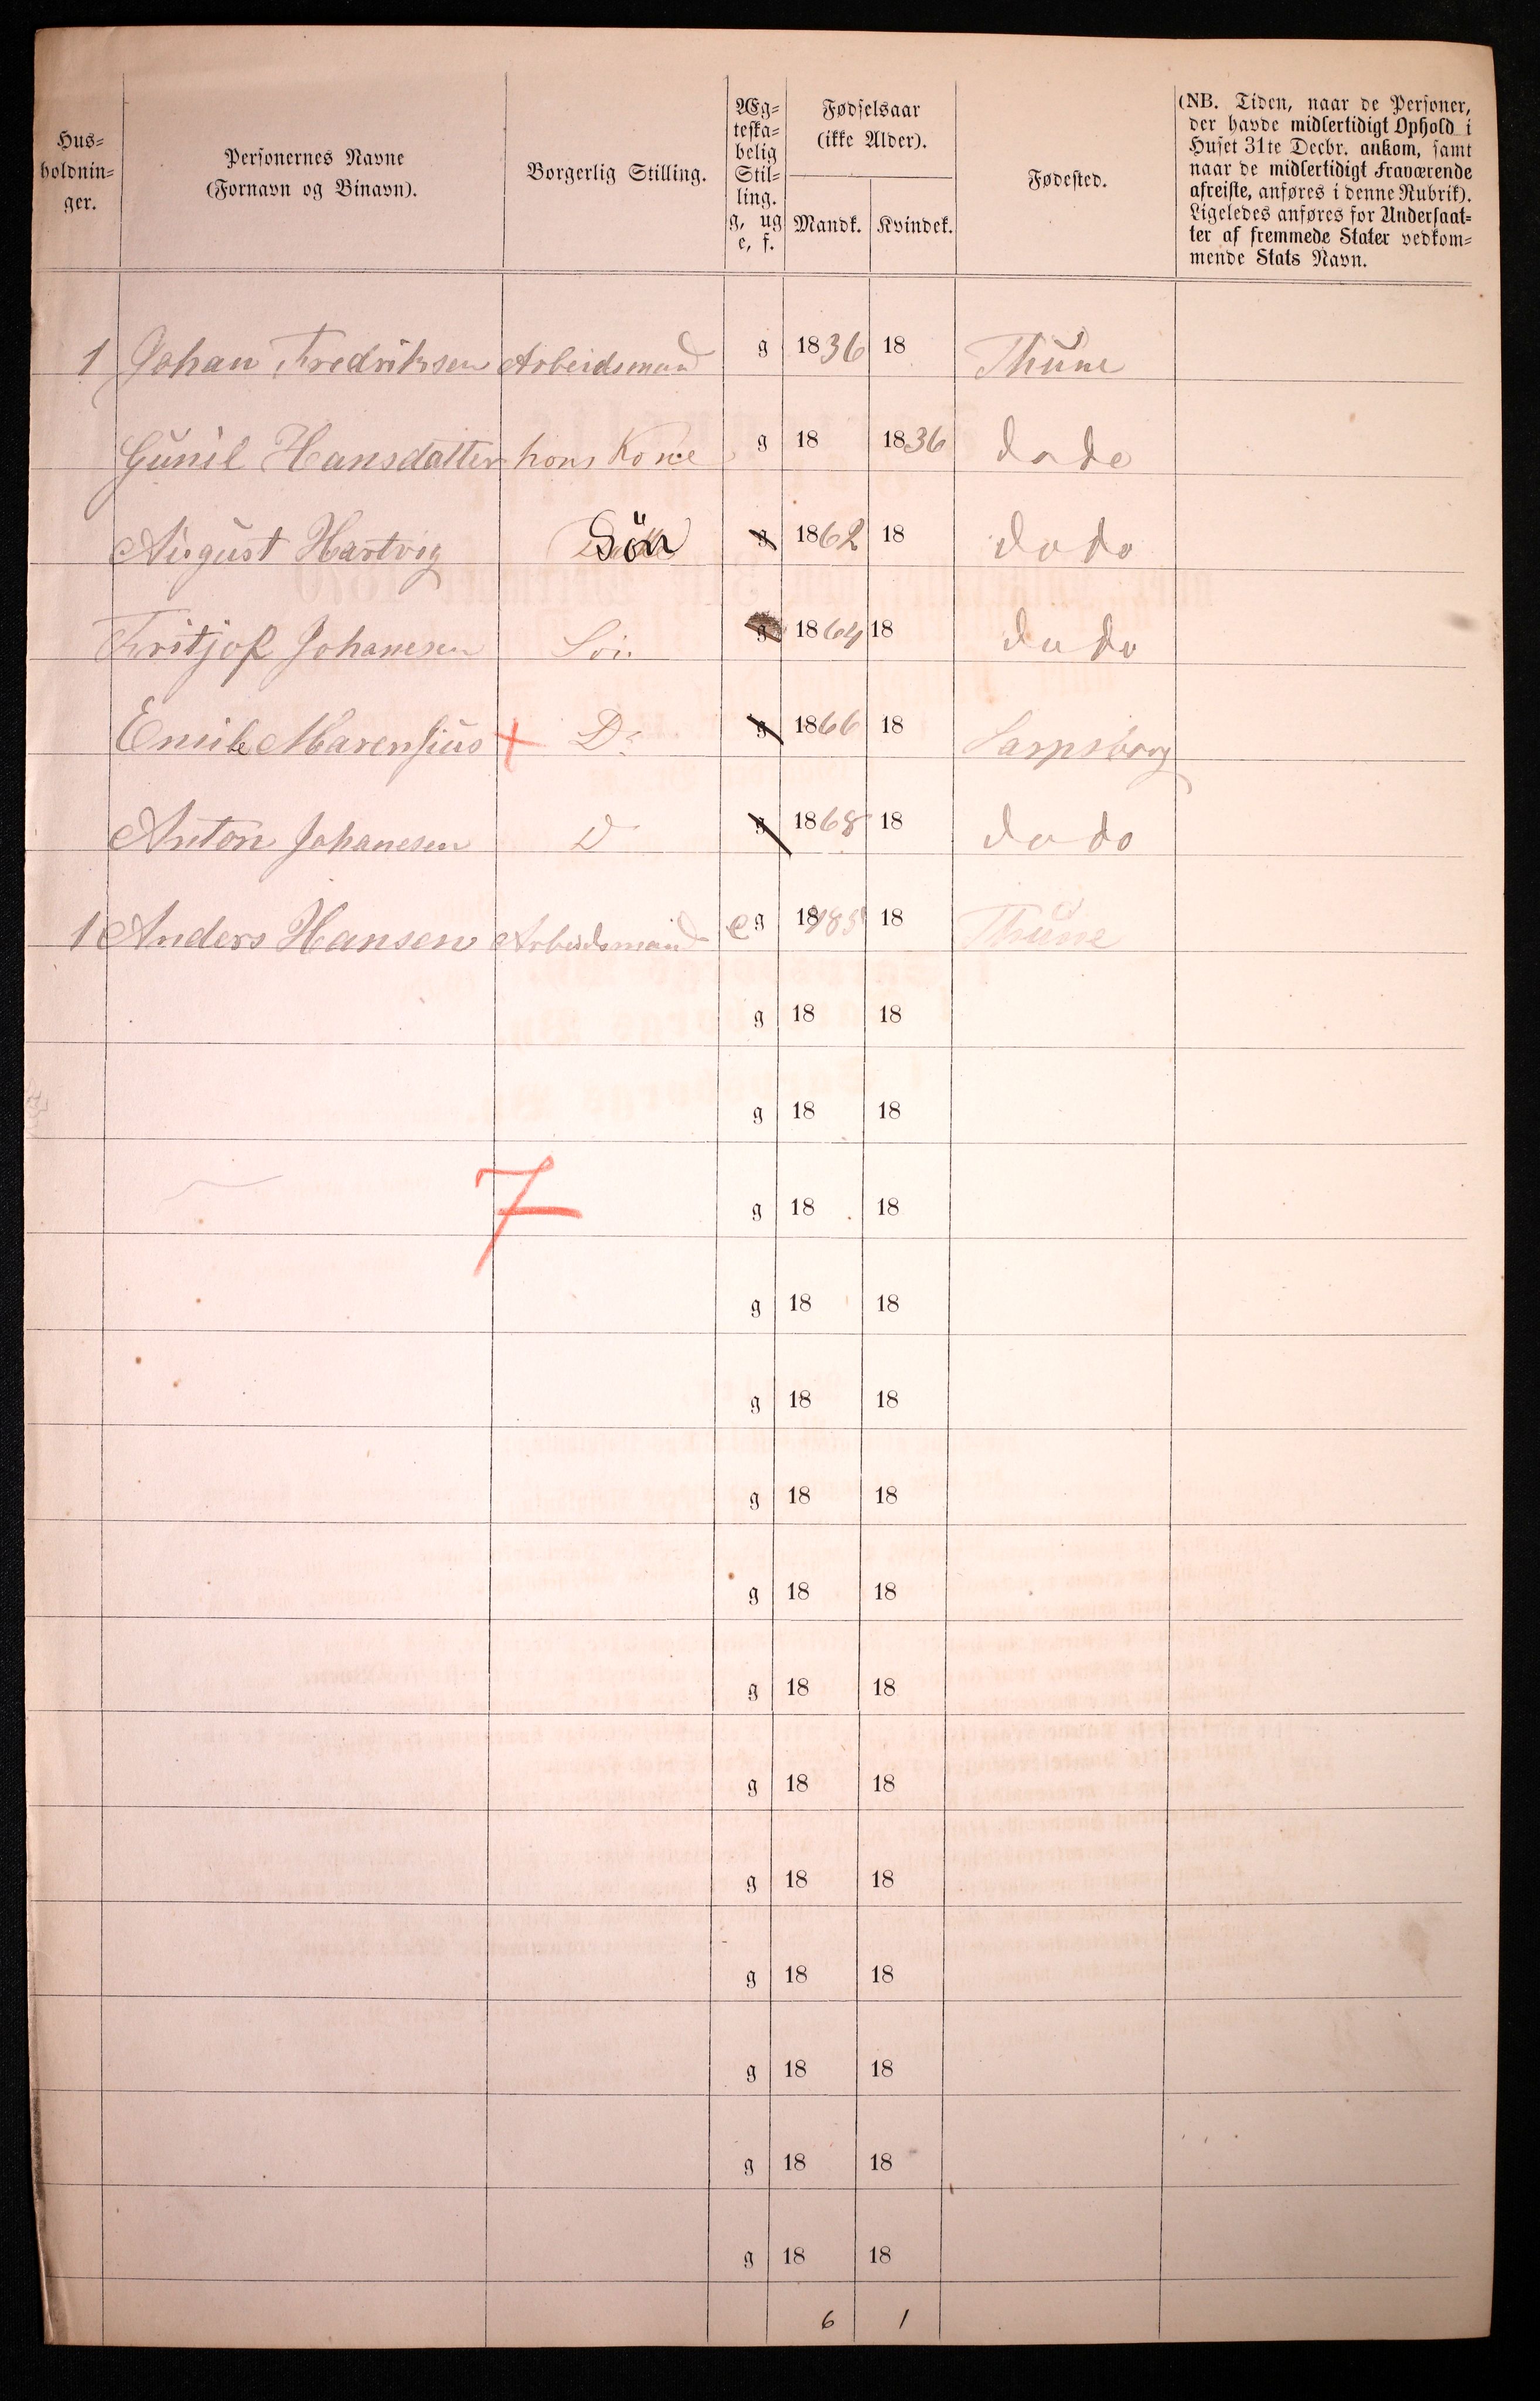 Hus=
holdnin=
ger.
Personernes Navne
(Fornavn og Binavn).
Borgerlig Stilling.
Æg=
teska=
belig
Stil=
ling.
g, ug
e, f.
Fødselsaar
(ikke Alder).
Mandk.
Kvindek.
Fødested.
(NB. Tiden, naar de Personer,
der havde midlertidigt Ophold i
Huset 31te Decbr. ankom, samt
naar de midlertidigt Fraværende
afreiste, anføres i denne Rubrik).
Ligeledes anføres for Undersaat=
ter af fremmede Stater vedkom=
mende Stats Navn.
1 Johan Fredriksen Arbeidsmand g 1836 18 Thune
Gunil Hansdatter hans Kone g 18 1836 do do
August Hartvig Søn g 1862 18 do do
Fritjof Johannesen Søn g 1864 18 do do
Emil Marensius Do g 1866 18 Sarpsborg
Anton Johanesen D g 1868 18 do do
1 Anders Hansen Arbeidsmand e g 18 18 Thune
g 18 18
g 18 18
7 g 18 18
g 18 18
g 18 18
g 18 18
g 18 18
g 18 18
g 18 18
g 18 18
g 18 18
g 18 18
g 18 18
g 18 18
6 1